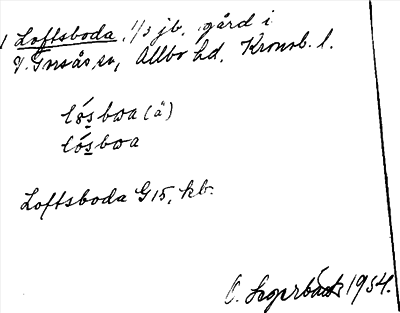 1 Loftsboda, 1/3 jb. gård i
V. Torsås sn, Allbo hd, Kronob. l.
lósboa (å)
lósboa
Loftsboda G15, kb.
O. 1954.